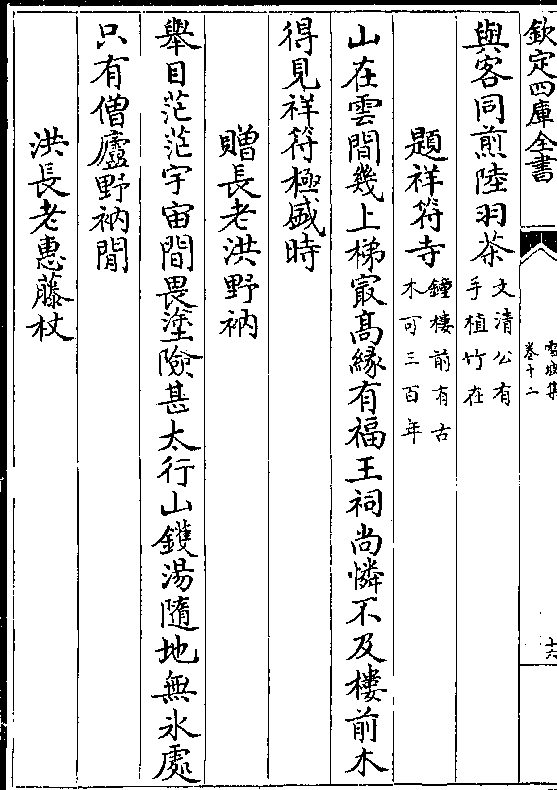 欽定四庫全書
卷十二
十六
與客同煎陸羽茶文清公有手植竹在
題祥符寺鐘樓前有古木可三百年
山在雲間幾上梯㝡髙緣有福王祠尚憐不及樓前木
得見祥符極盛時
贈長老洪野衲
舉目茫茫宇宙間畏塗險甚太行山鑊湯隨地無氷處
只有僧廬野衲閒
洪長老惠藤杖